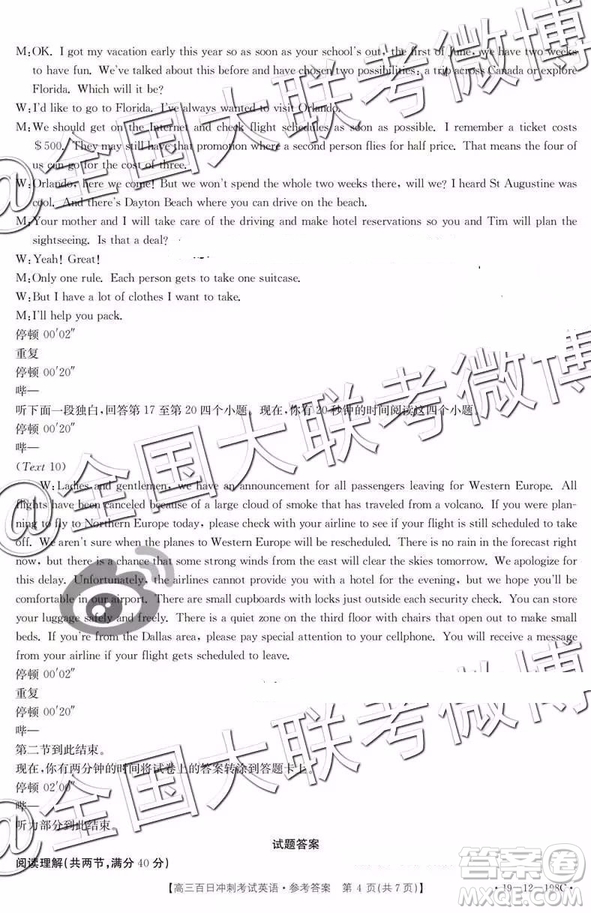 M:OK. I got my vacation early this year so as soon as your school's out, the first of June, we have two weeks
to have fun. We've talked about this before and have chosen two possibilities: a trip across Canada or explore
Florida. Which will it be?
W:I'd like to go to Florida. I've always wanted to visit Orlando.
M:We should get on the Internet and check flight schedules as soon as possible. I remember a ticket costs
$500. They may still have that promotion where a second person flies for half price. That means the four of
us can go for the cost of three.
W:Orlando, here we come! But we won't spend the whole two weeks there, will we? I heard St Augustine was
cool. And there's Dayton Beach where you can drive on the beach.
M:Your mother and I will take care of the driving and make hotel reservations so you and Tim will plan the
sightseeing. Is that a deal?
W:Yeah! Great!
M:Only one rule. Each person gets to take one suitcase.
W:But I have a lot of clothes I want to bring.
M:I'll help you pack.
停顿 00′02″
重复
停顿 00′20″
哔—
听下面一段独白,回答第 17 至第 20 四个小题。现在,你有 20 秒钟的时间阅读这四个小题。
停顿 00′20″
哔—
(Text 10)
W:Ladies and gentlemen, we have an announcement for all passengers leaving for Western Europe. All
flights have been canceled because of a large cloud of smoke that has traveled from a volcano. If you were plan-
ning to fly to Northern Europe today, please check with your airline to see if your flight is still on schedule.
We aren't sure when the planes to Western Europe will be rescheduled. There is no rain in the forecast right
now, but there is a chance that some strong winds will clear the skies tomorrow. We apologize for
this delay. Unfortunately, the airlines can't provide a hotel for the evening, but we hope you will be
comfortable in our airport. There are comfortable seats outside each security check. You can store
your luggage safely and freely. There is a quiet section on the third floor with chairs that can be used as small
beds. If you're from the Dallas area, please pay special attention to your cellphone. You will receive a message
from your airline if your flight gets scheduled to leave.
停顿 00′02″
重复
停顿 00′20″
哔—
第二节到此结束。
现在,你有两分钟的时间将试卷上的答案转涂到答题卡上。
停顿 02′00″
哔—
听力部分到此结束。
试题答案
阅读理解(共两节,满分 40 分)
【高三百日冲刺考试英语·参考答案 第 4 页(共 7 页)】
·19-12-198C·
@全国大联考微博
@全国大联考微博
@全国大联考微博